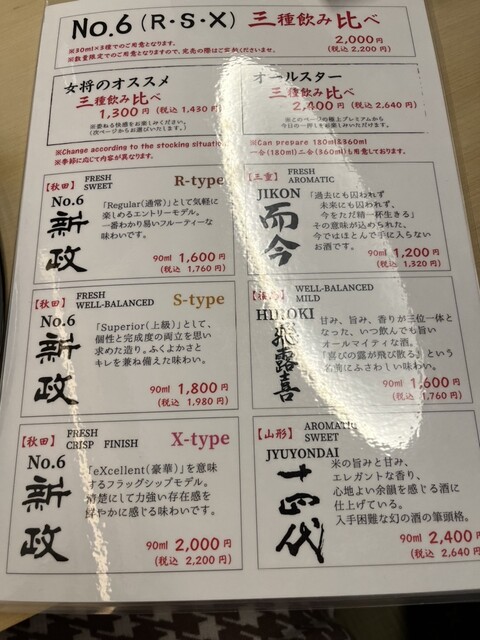 No.6 (R・S・X) 三種飲み比べ
2,000円
(税込 2,200円)
※30ml×3種でのご用意となります。
※数量限定でのご用意となりますので、完売の際はご容赦くださいませ。
女将のオススメ
三種飲み比べ
1,300円 (税込 1,430円)
※委ねる快感をお楽しみください。
(次ページからお選びいたします。)
オールスター
三種飲み比べ
2,400円 (税込 2,640円)
※このページの極上プレミアムから
今日の一押しをお楽しみいただけます。
※Change according to the stocking situation
※季節に応じて内容が異なります。
※Can prepare 180ml&360ml
一合(180ml)二合(360ml)も用意しております。
【秋田】 FRESH
SWEET
R-type
No.6
新政
「Regular(通常)」として気軽に
楽しめるエントリーモデル。
一番わかり易いフルーティーな
味わいです。
90ml 1,600円
(税込 1,760円)
【三重】 FRESH
AROMATIC
JIKON
而今
「過去にも囚われず
未来にも囚われず、
今をただ精一杯生きる」
その意味が込められた、
今ではほとんど手に入らない
お酒です。
90ml 1,200円
(税込 1,320円)
【秋田】 FRESH
WELL-BALANCED
S-type
No.6
新政
「Superior(上級)」として、
個性と完成度の両立を思い
求めた造り。ふくよかさと
キレを兼ね備えた味わい。
90ml 1,800円
(税込 1,980円)
WELL-BALANCED
MILD
飛露喜
甘み、旨み、香りが三位一体と
なった、いつ飲んでも旨い
オールマイティな酒。
『喜びの露が飛び散る』という
名前にふさわしい味わい。
90ml 1,600円
(税込 1,760円)
【秋田】 FRESH
CRISP FINISH
X-type
No.6
新政
「eXcellent(豪華)」を意味
するフラッグシップモデル。
清楚にして力強い存在感を
鮮やかに感じる味わいです。
90ml 2,000円
(税込 2,200円)
【山形】 AROMATIC
SWEET
JYUYONDAI
十四代
米の旨みと甘み、
エレガントな香り、
心地よい余韻を感じる酒に
仕上げている。
入手困難な幻の酒の筆頭格。
90ml 2,400円
(税込 2,640円)